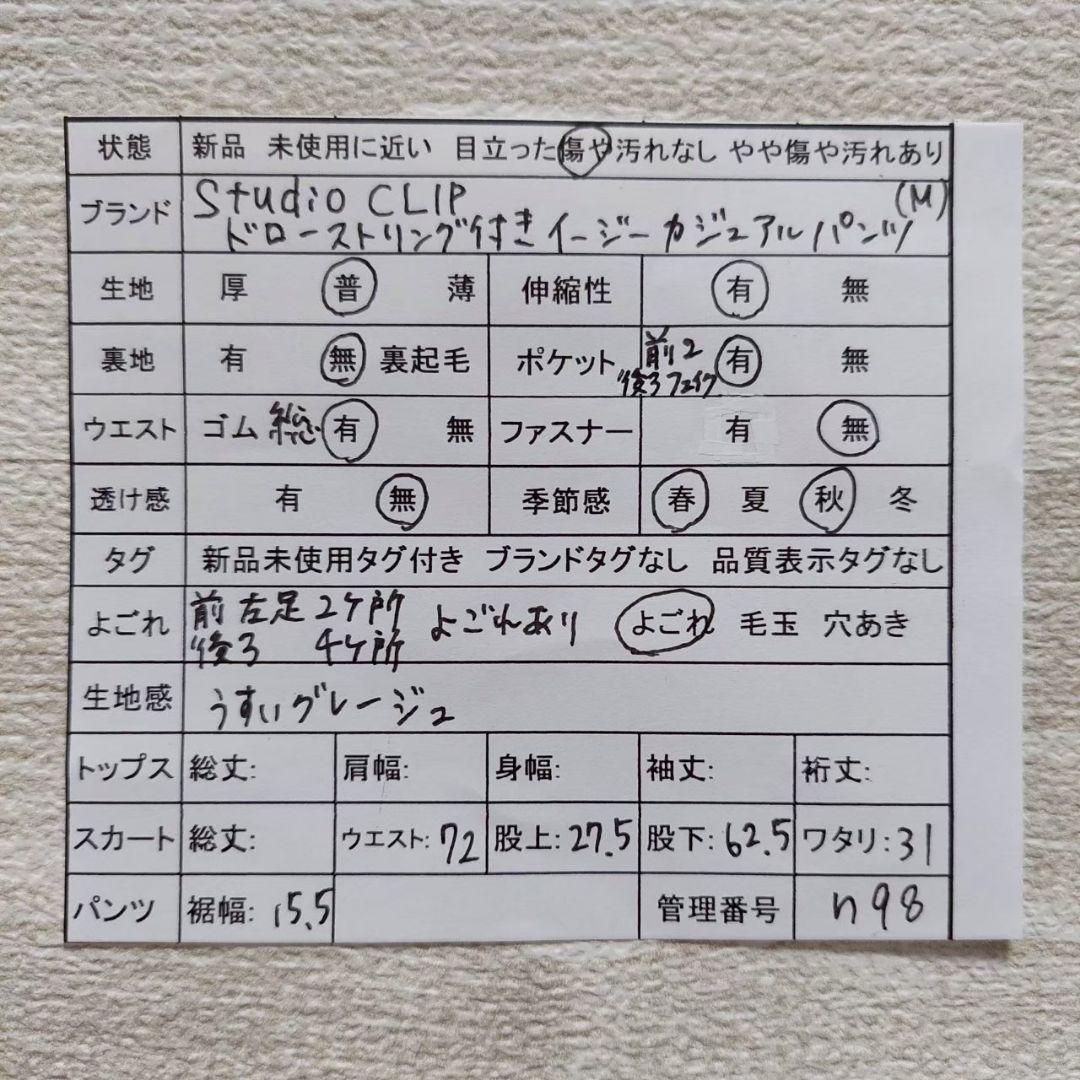 状態 新品 未使用に近い 目立った傷や汚れなし やや傷や汚れあり
ブランド Studio CLIP (M)
ドローストリング付きイージーカジュアルパンツ
生地 厚 普 薄 伸縮性 有 無
裏地 有 無 裏起毛 ポケット 前2 後ろフェイク 有 無
ウエスト ゴム 総 有 無 ファスナー 有 無
透け感 有 無 季節感 春 夏 秋 冬
タグ 新品未使用タグ付き ブランドタグなし 品質表示タグなし
よごれ 前左足2ケ所 よごれあり よごれ 毛玉 穴あき
後ろ 4ケ所
生地感 うすいグレージュ
トップス 総丈: 肩幅: 身幅: 袖丈: 裄丈:
スカート 総丈: ウエスト: 72 股上: 27.5 股下: 62.5 ワタリ: 31
パンツ 裾幅: 15.5 管理番号 n98